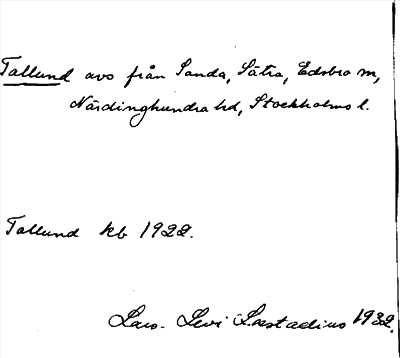 Tallund avs från Sanda, Sätra, Edsbro sn,
Närdinghundra hd, Stockholms l.
Tallund kb 1922.
Lars-Levi Læstadius 1932.